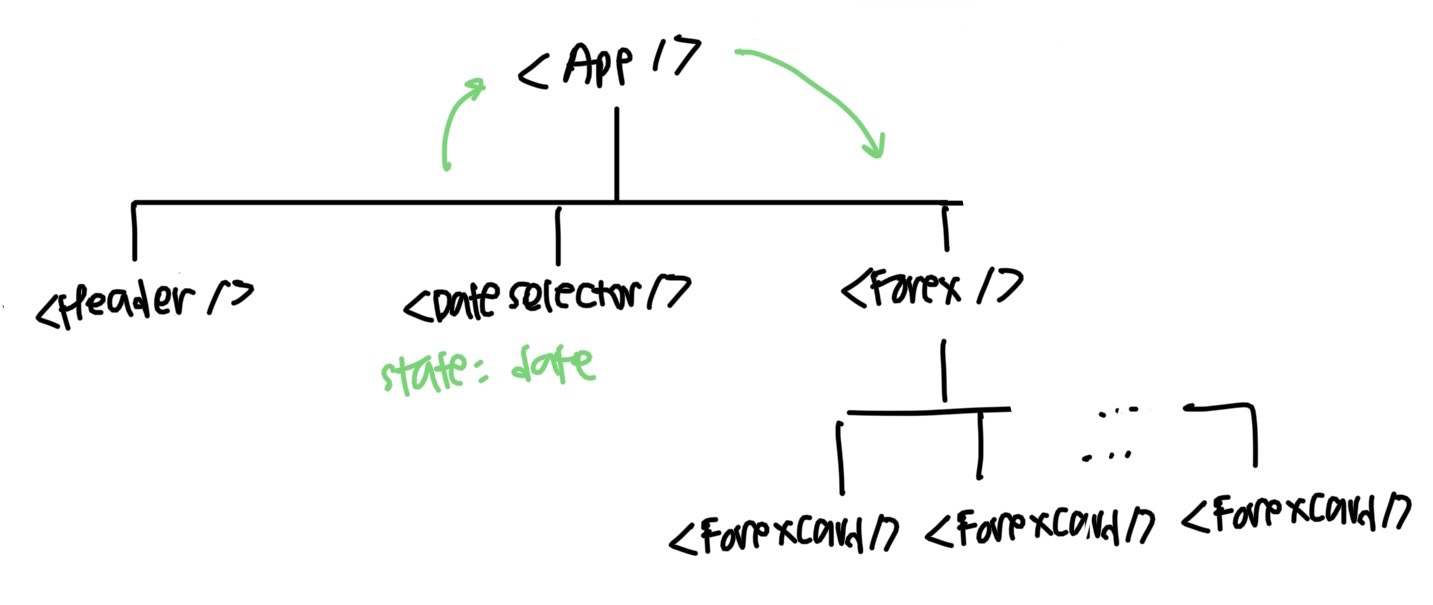 <App />
<Header />
<Dateselector/>
<Forex />
state: date
<ForexCard/>
<ForexCard/>
<ForexCard/>